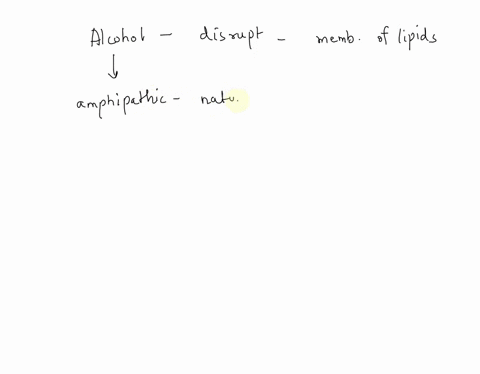 Alcohol - disrupt - memb. of lipids
↓
amphipathic - natu.